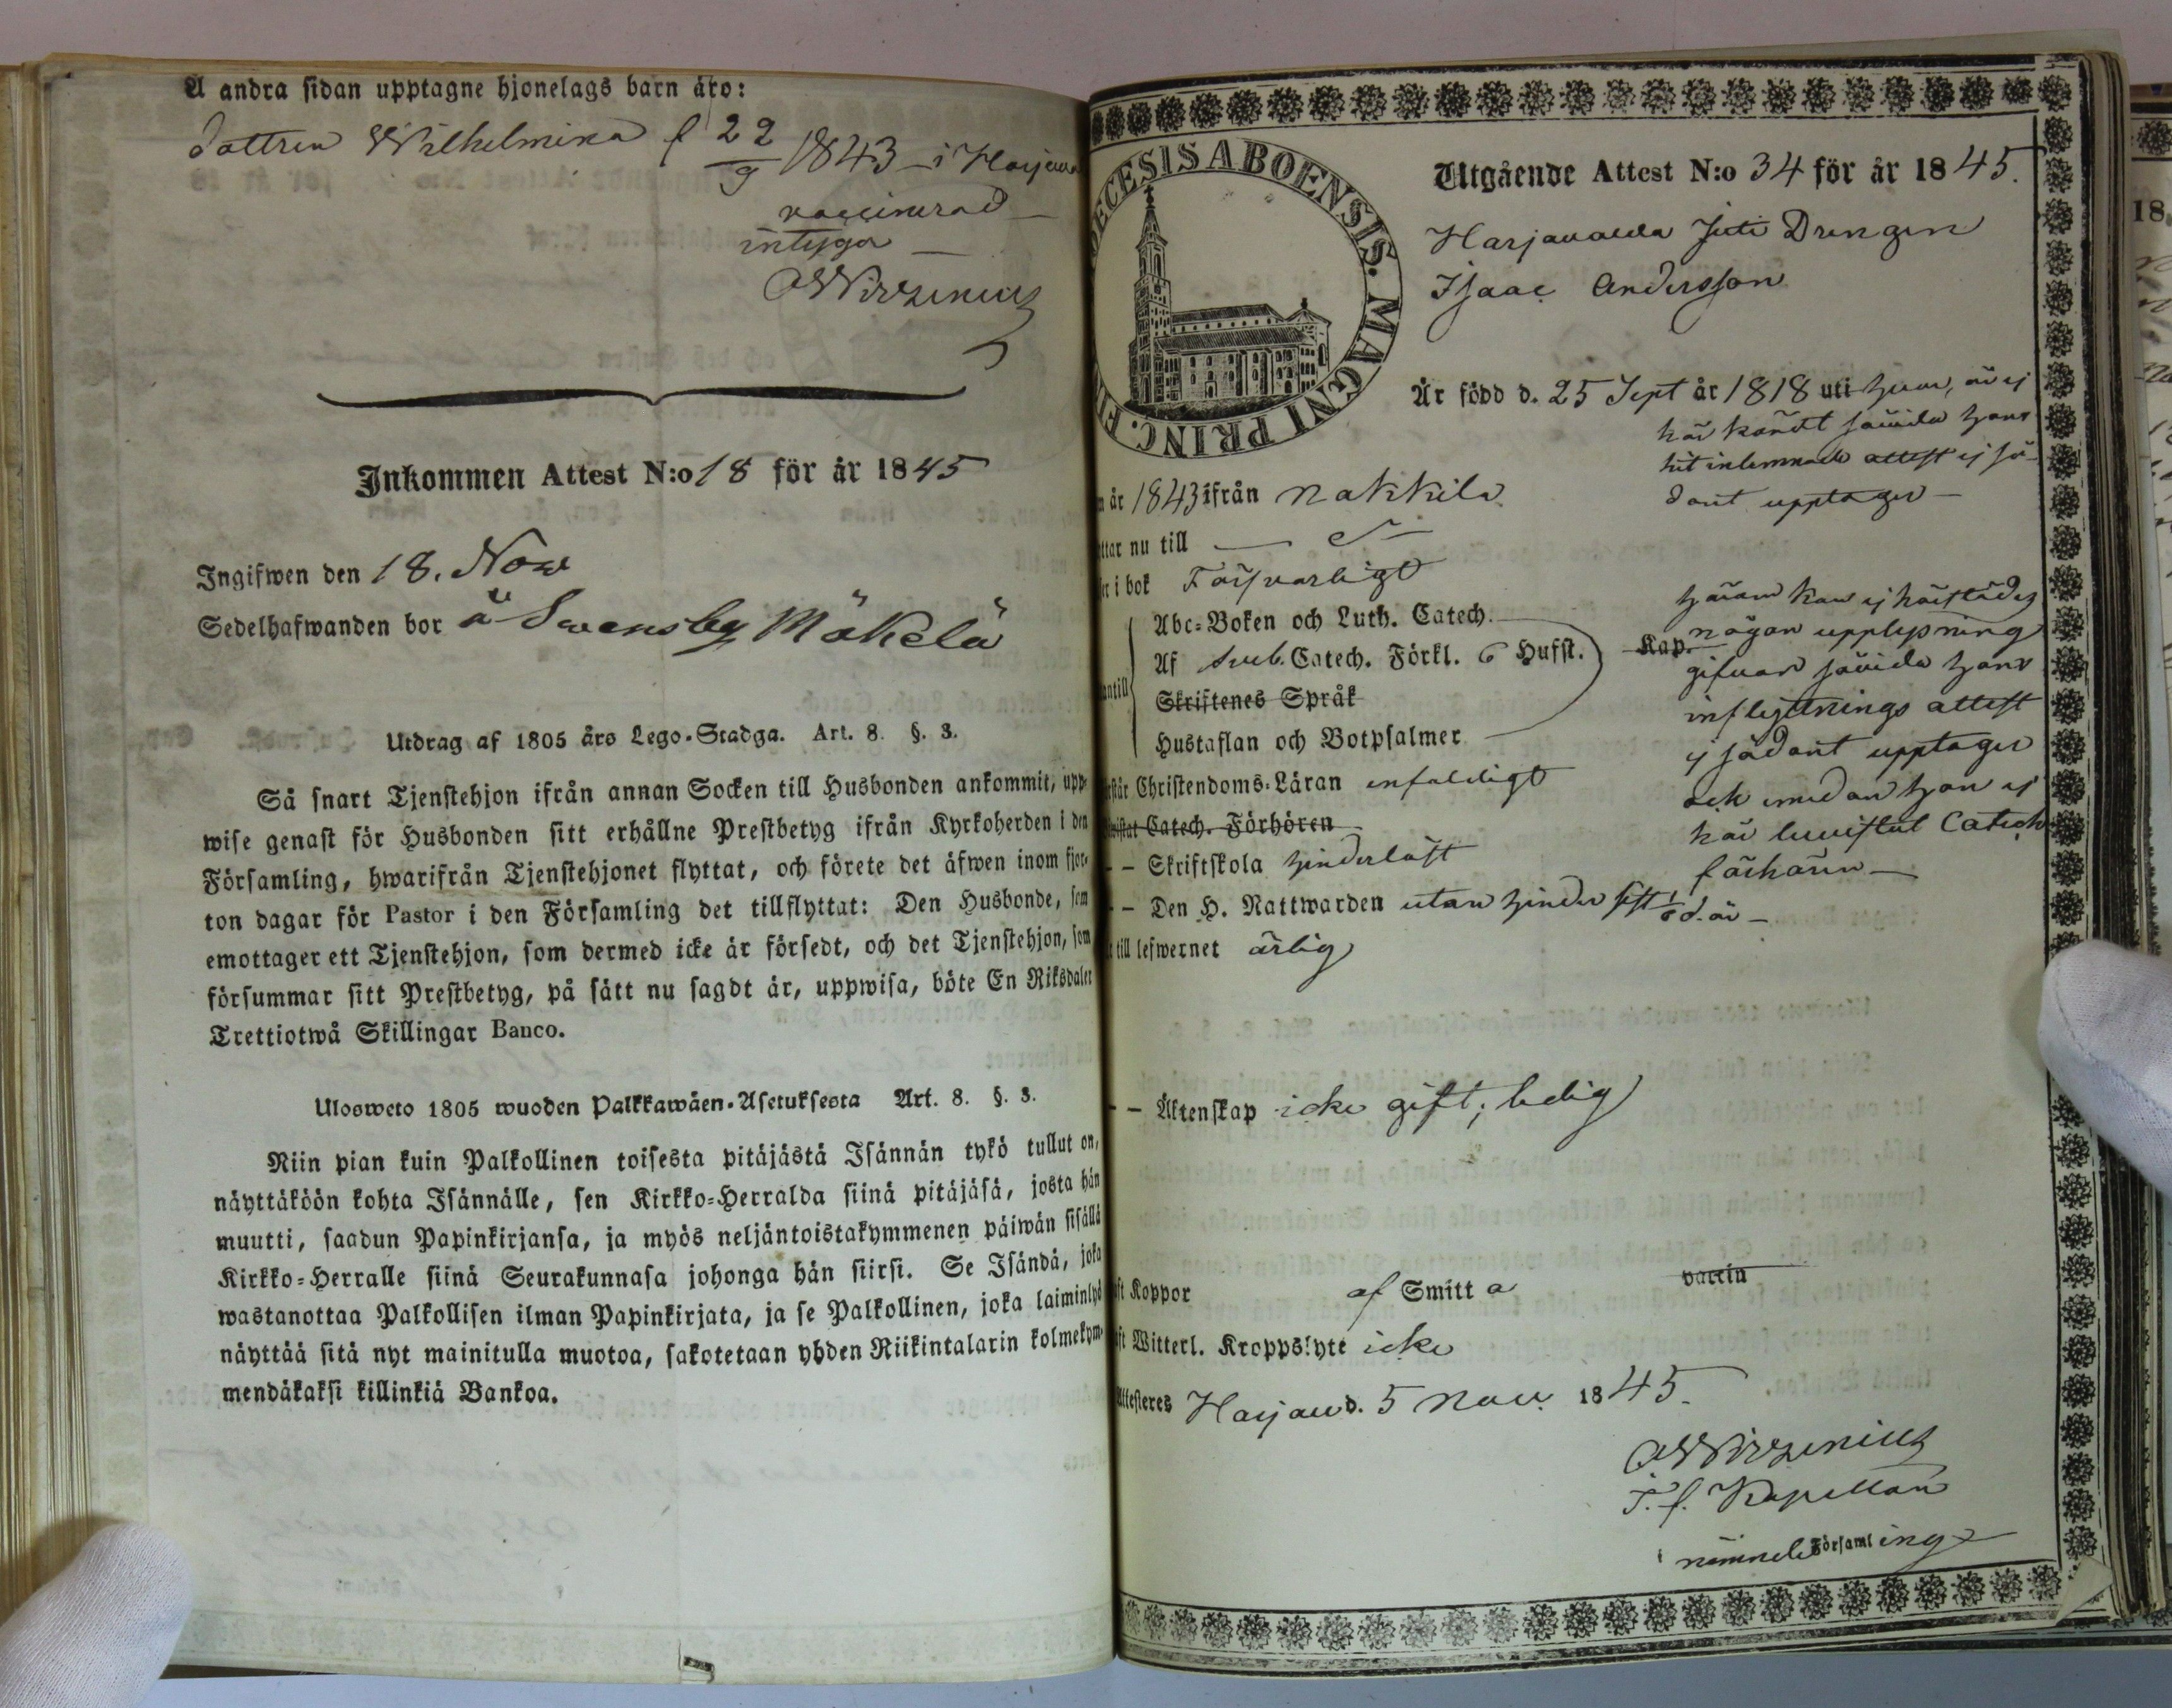 A andra sidan upptagne hjonelags barn äro:
dottren Wilhelmina f 22/9 1843 – i Harjaua
vaccinerad –
intygar –
Wirzenius
Inkommen Attest N:o 18 för år 1845
Ingifwen den 18. Now
Sedelhafwanden bor å Swensby Mäkelä
Utdrag af 1805 års Lego-Stadga. Art. 8. §. 3.
Så snart Tjenstehjon ifrån annan Socken till Husbonden ankommit, upp-
wise genast för Husbonden sitt erhållne Prestbetyg ifrån Kyrkoherden i den
Församling, hwarifrån Tjenstehjonet flyttat, och förete det äfwen inom fjor-
ton dagar för Pastor i den Församling det tillflyttat: Den Husbonde, som
emottager ett Tjenstehjon, som dermed icke är försedt, och det Tjenstehjon, som
försummar sitt Prestbetyg, på sätt nu sagdt är, uppwisa, böte En Riksdaler
Trettiotwå Skillingar Banco.
Ulosweto 1805 wuoden Palkkawäen-Asetuksesta Art. 8. §. 3.
Niin pian kuin Palkollinen toisesta pitäjästä Isännän tykö tullut on,
näyttäköön kohta Isännälle, sen Kirkko-Herralda siinä pitäjäsä, josta hän
muutti, saadun Papinkirjansa, ja myös neljäntoistakymmenen päiwän sisällä
Kirkko-Herralle siinä Seurakunnasa johonga hän siirsi. Se Isändä, joka
wastanottaa Palkollisen ilman Papinkirjata, ja se Palkollinen, joka laiminlyö
näyttää sitä nyt mainitulla muotoa, sakotetaan yhden Riikintalarin kolmekym-
mendäkaksi killinkiä Bankoa.
ECESIS ABOENSIS. MAGNI PRINC. FI
Utgående Attest N:o 34 för år 1845.
Harjaualda Juti Drengen
Isaac Andersson
Är född d. 25 Sept år 1818 uti hvar, är ej
här kändt såvida hans
hit inlemnade attest ej så-
dant upptager –
n år 1843 ifrån Nakkila
ttar nu till
er i bok Försvarligt
Abc-Boken och Luth. Catech.
Af Sveb. Catech. Förkl. 6 Hufst. Kap.
antill
Skriftenes Språk
Hustaflan och Botpsalmer
härom kan ej härstädes
någon upplysning
gifvas såvida hans
inflyttnings attest
ej sådant upptager
och emedan han ej
här bevistat Catech
förhören –
rstår Christendoms-Läran enfaldigt
wistat Catech. Förhören
– – Skriftskola hinderlöst
– – Den H. Nattwarden utan hinder sist 1/6 d. år –
till lefwernet ärlig
– – Äktenskap icke gift; ledig
ft Koppor af Smitt a vaccin
ft Witterl. Kroppslyte icke
Attesteres Harjau d. 5 Nov. 1845.
Wirzenius
T. f. Kapellan
i nämnde Församling
18